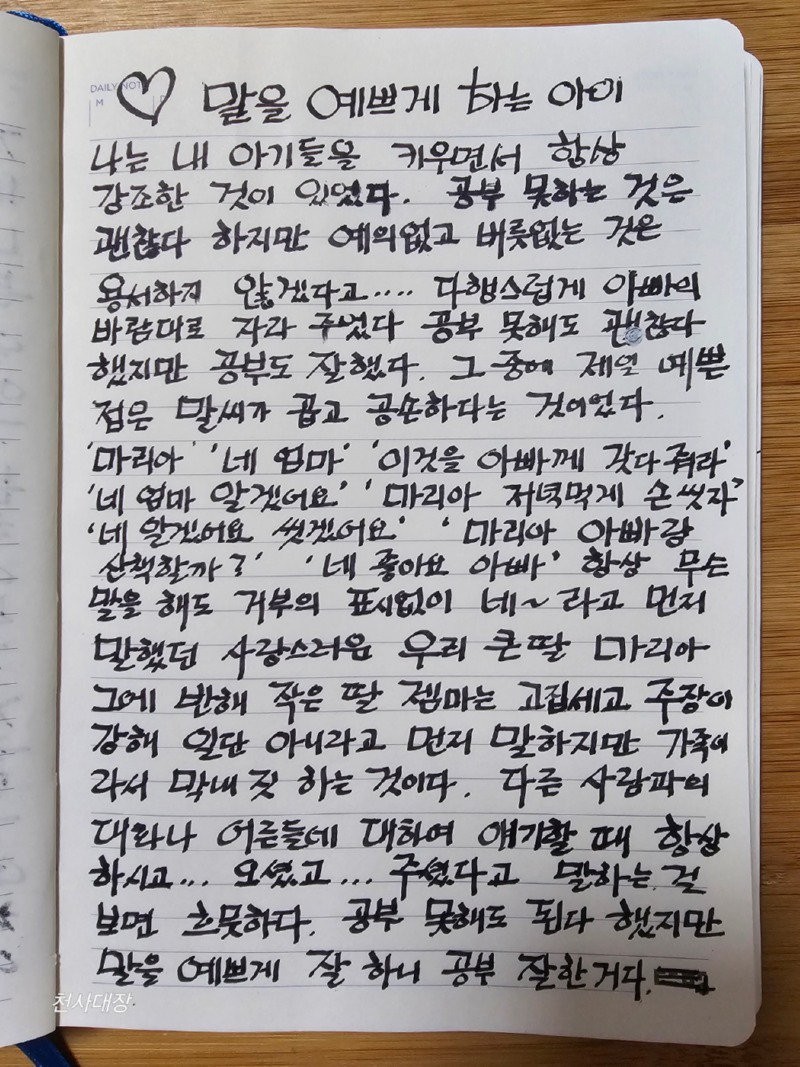 DAILY NOTE
M
♡ 말을 예쁘게 하는 아이
나는 내 아기들을 키우면서 항상
강조한 것이 있었다. 공부 못하는 것은
괜찮다 하지만 예의없고 버릇없는 것은
용서하지 않겠다고.... 다행스럽게 아빠의
바람대로 자라 주었다 공부 못해도 괜찮다
했지만 공부도 잘했다. 그 중에 제일 예쁜
점은 말씨가 곱고 공손하다는 것이었다.
'마리아' '네 엄마' '이것을 아빠께 갖다 줘라'
'네 엄마 알겠어요' '마리아 저녁먹게 손씻자'
'네 알겠어요 씻겠어요' '마리아 아빠랑
산책할까?' '네 좋아요 아빠' 항상 무슨
말을 해도 거부의 표시없이 네~ 라고 먼저
말했던 사랑스러운 우리 큰딸 마리아
그에 반해 작은 딸 젬마는 고집세고 주장이
강해 일단 아니라고 먼저 말하지만 가족이
라서 막내 짓 하는 것이다. 다른 사람과의
대화나 어른들에 대하여 얘기할 때 항상
하시고... 오셨고... 주셨다고 말하는 걸
보면 흐뭇하다. 공부 못해도 된다 했지만
말을 예쁘게 잘 하니 공부 잘한거다.
천사대장